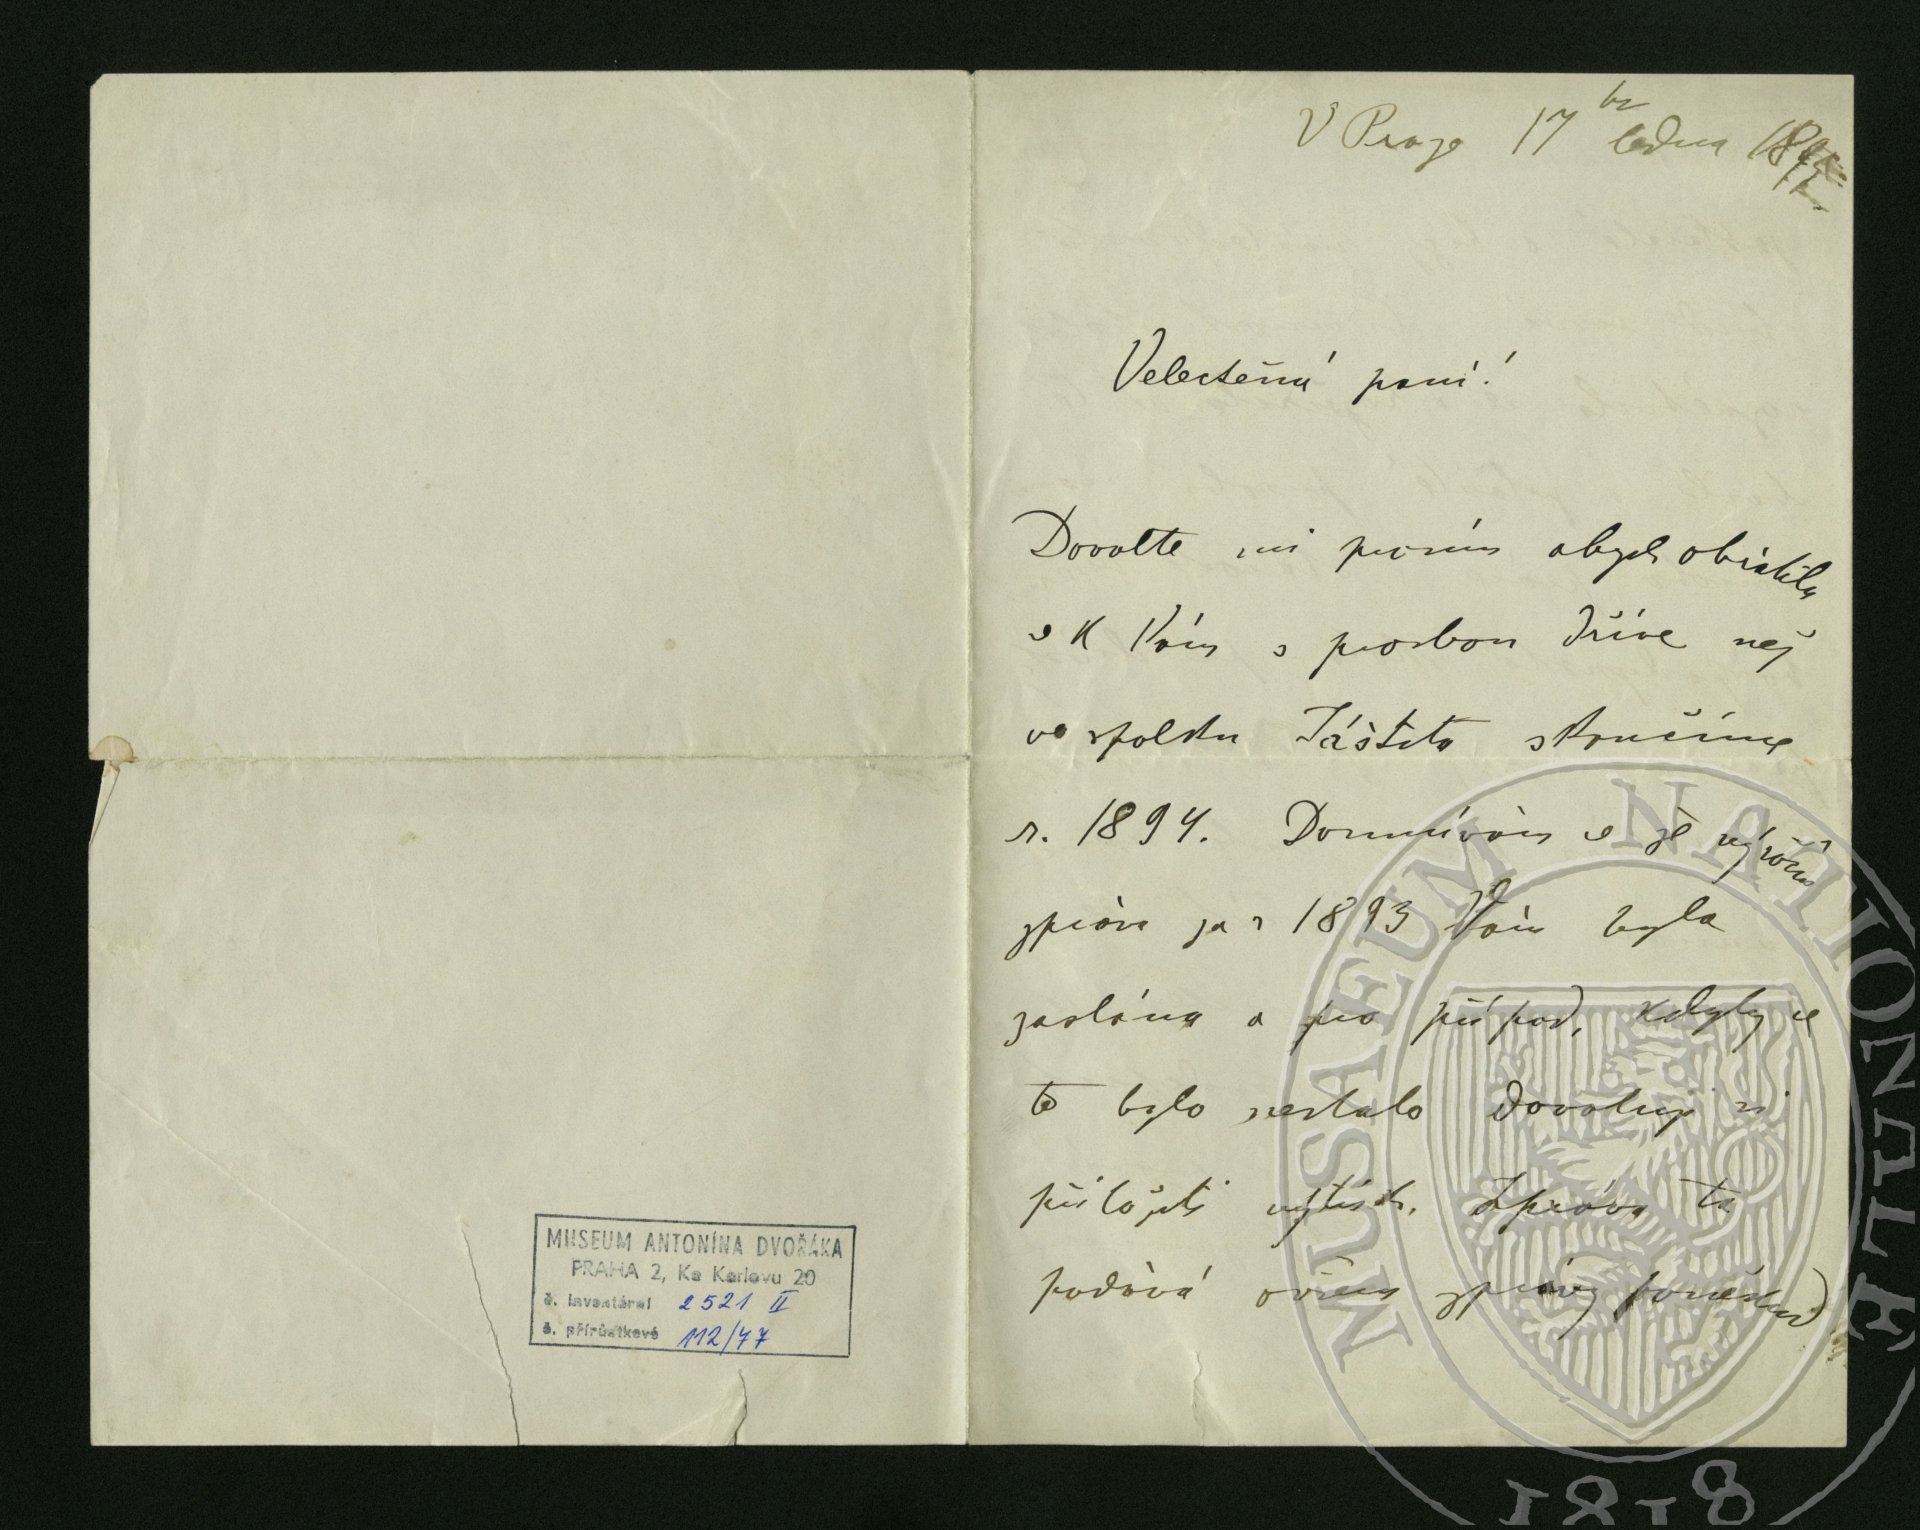 V Praze 17 ho ledna 189
Velectěná paní!
Dovolte mi prosím abych obrátila
se k Vám s prosbou dříve než
ve spolku Záštita skončíme
r. 1894. Domnívám se že výroční
zpráva za r 1893 Vám byla
zaslána a pro případ, kdyby se
to bylo nestalo dovoluji si
přiložiti výtisk. Zpráva ta
podává ovšem zprávy poněkud
MUSEUM ANTONÍNA DVOŘÁKA
PRAHA 2, Ke Karlovu 20
č. inventární 2521 II
č. přírůstkové 112/77
MUSAEUM NATIONALE
1818